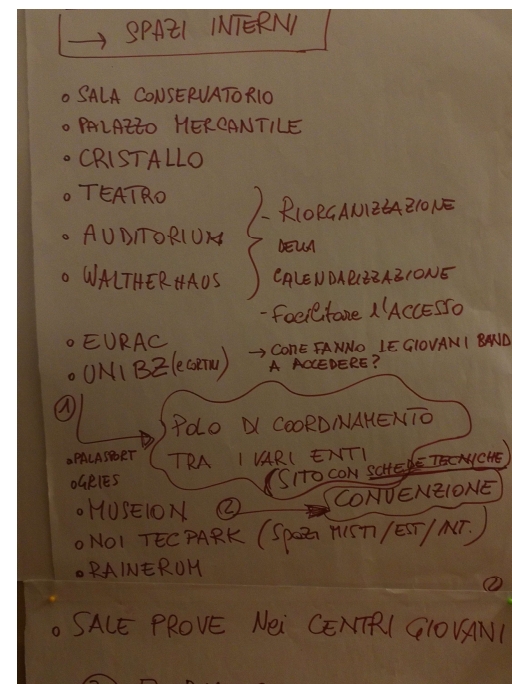 → SPAZI INTERNI
• SALA CONSERVATORIO
• PALAZZO MERCANTILE
• CRISTALLO
• TEATRO
• AUDITORIUM
• WALTHERHAUS
- RIORGANIZZAZIONE
DELLA
CALENDARIZZAZIONE
- Facilitare l'ACCESSO
• EURAC
→ COME FANNO LE GIOVANI BAND
A ACCEDERE?
• UNIBZ (e CORTILI)
①
POLO DI COORDINAMENTO
TRA I VARI ENTI
(SITO CON SCHEDE TECNICHE)
• PALASPORT
• GRIES
• MUSEION ② → CONVENZIONE
• NOI TECPARK (Spazi MISTI/EST/INT.)
• RAINERUM
②
• SALE PROVE Nei CENTRI GIOVANI